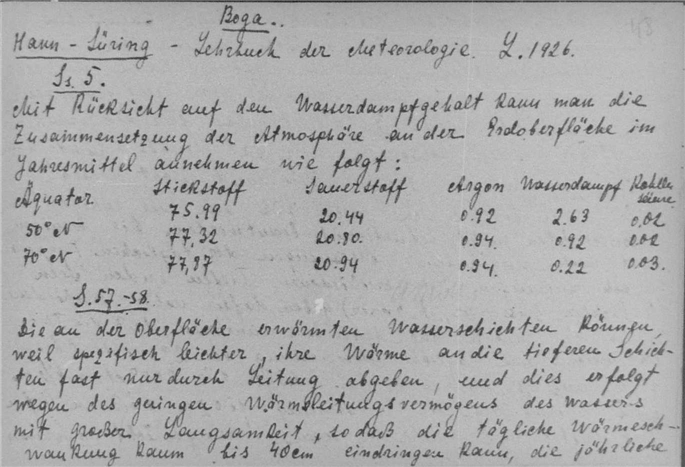 Вода..
Hann - Süring - Lehrbuch der Meteorologie. L. 1926.
Ss. 5.
Mit Rücksicht auf den Wasserdampfgehalt kann man die
Zusammensetzung der Atmosphäre an der Erdoberfläche im
Jahresmittel annehmen wie folgt:
Stickstoff Sauerstoff Argon Wasserdampf Kohlensäure
Äquator 75.99 20.44 0.92 2.63 0.02
50° N 77,32 20.80. 0.94. 0.92 0.02
70° N 77,87 20.94 0.94. 0.22 0.03.
S. 57.-58.
Die an der Oberfläche erwärmten Wasserschichten können,
weil spezifisch leichter, ihre Wärme an die tieferen Schich-
ten fast nur durch Leitung abgeben, und dies erfolgt
wegen des geringen Wärmeleitungsvermögens des Wassers
mit großer Langsamkeit, so daß die tägliche Wärmesch-
wankung kaum bis 40cm eindringen kann, die jährliche